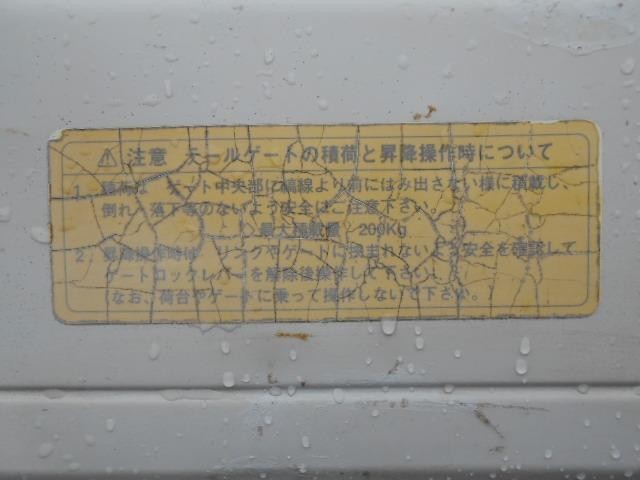 ⚠ 注意 テールゲートの積荷と昇降操作時について
1. 積荷は ゲート中央部に縞線より前にはみ出さない様に積載し、
倒れ、落下等のないよう安全にご注意下さい。
最大積載量 200Kg
2. 昇降操作時は リンクやゲートに挟まれないよう安全を確認して
ゲートロックレバーを解除後操作して下さい。
(なお、荷台やゲートに乗って操作しないで下さい。